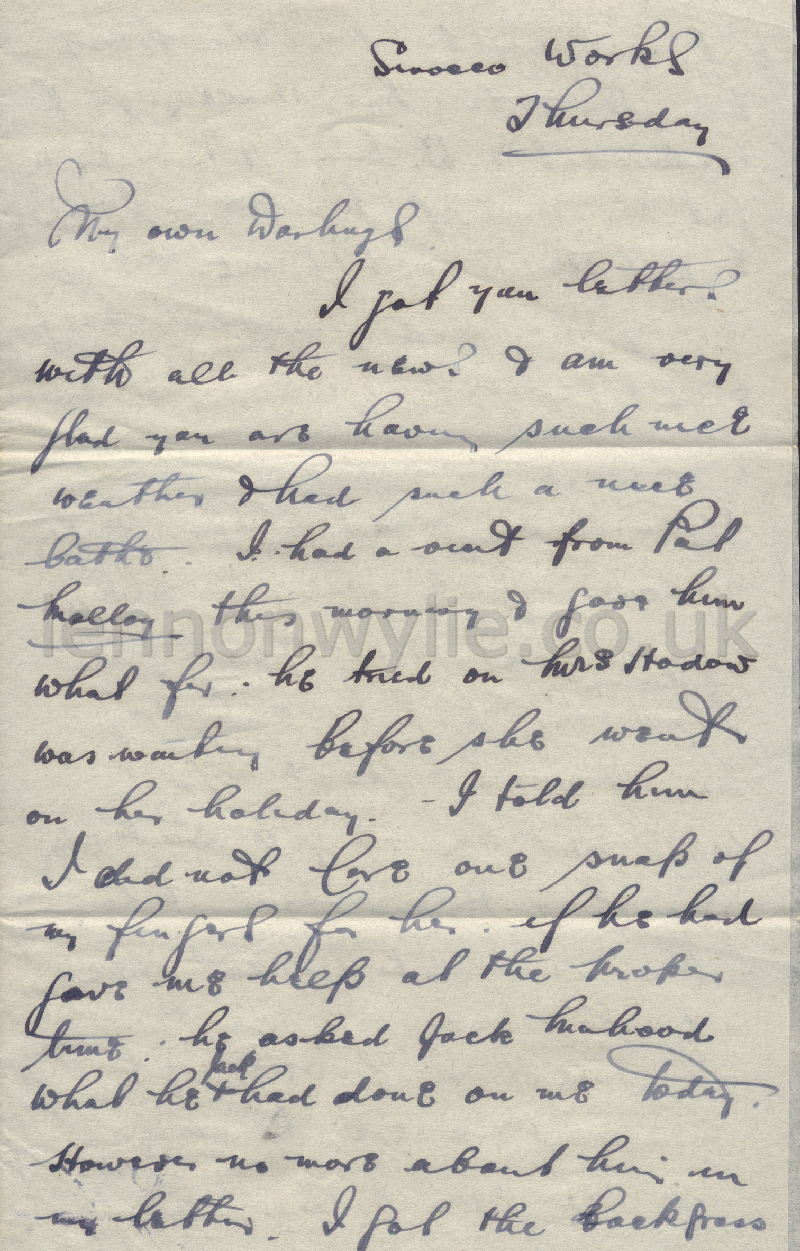 Sirocco Works
Thursday
My own Darlings
I got your letters
with all the news & am very
glad you are having such nice
weather & had such a nice
bathe. I had a visit from Pat
Malloy this morning & gave him
what for. he tried on Mrs Hadow
was waiting before she went
on her holiday. - I told him
I did not Care one snap of
my fingers for her. if he had
gave me help at the proper
time. he asked Jack
what he Jack had done on me today.
However no more about him in
my letter. I got the Backgrass
lennonwylie.co.uk